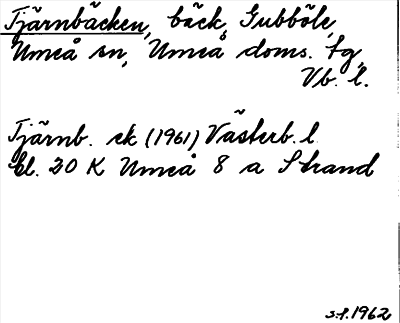 Tjärnbäcken, bäck, Gubböle,
Umeå sn, Umeå doms. tg,
Vb. l.
Tjärnb. ek (1961) Västerb. l.
bl. 20 K Umeå 8 a Strand
s.f. 1962